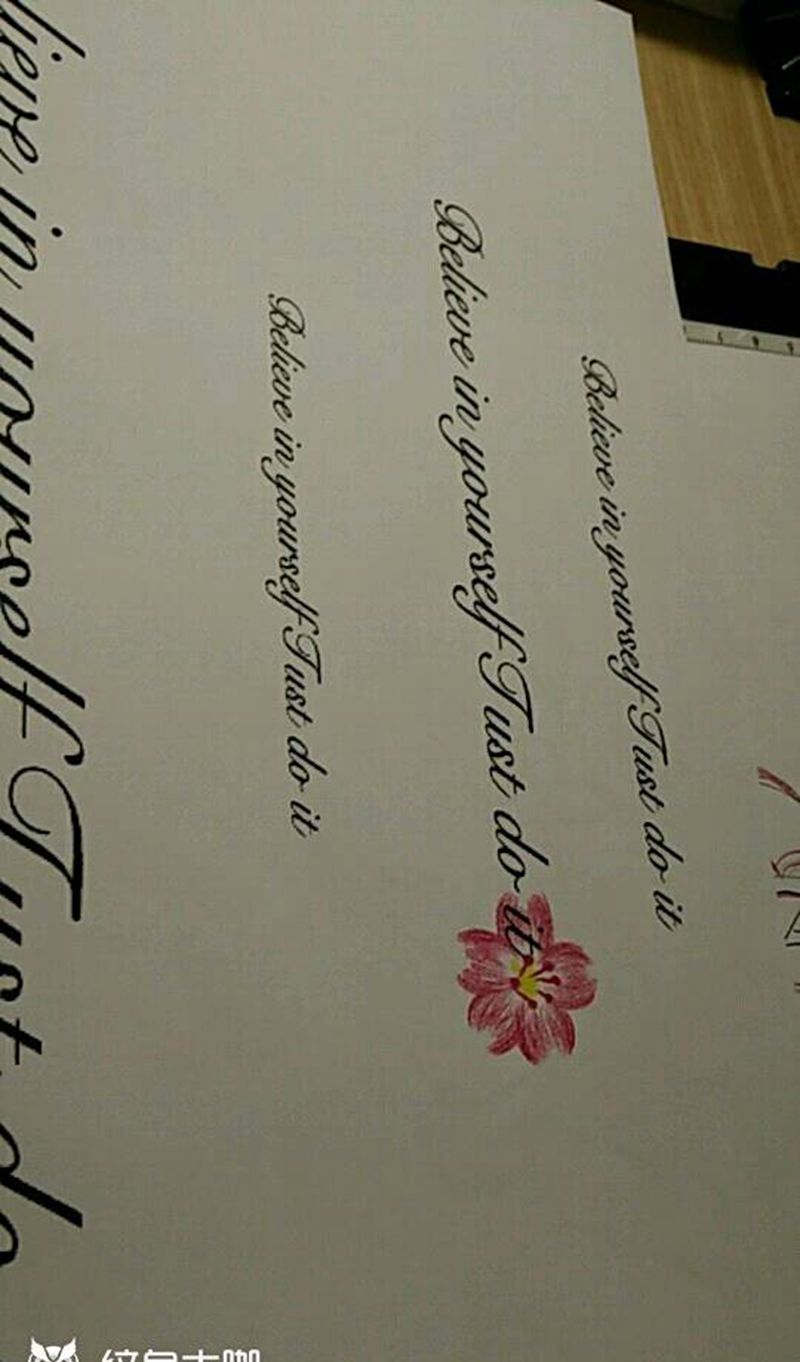 Believe in yourself Just do it
Believe in yourself Just do it
Believe in yourself Just do it
lieve in yourself Just do
纹身大咖